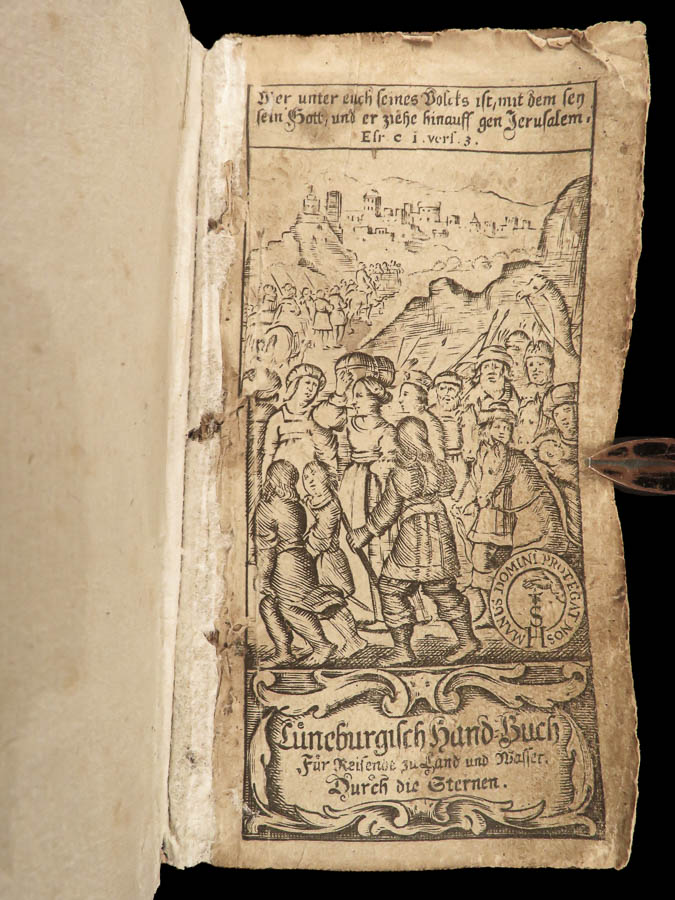 Wer unter euch seines Volcks ist, mit dem sey
sein Gott, und er ziehe hinauff gen Jerusalem.
Esr. c 1. vers. 3.
MANUS DOMINI PROTEGAT NOS
SH
Lüneburgisch Hand-Buch
Für Reisende zu Land und Wasser.
Durch die Sternen.